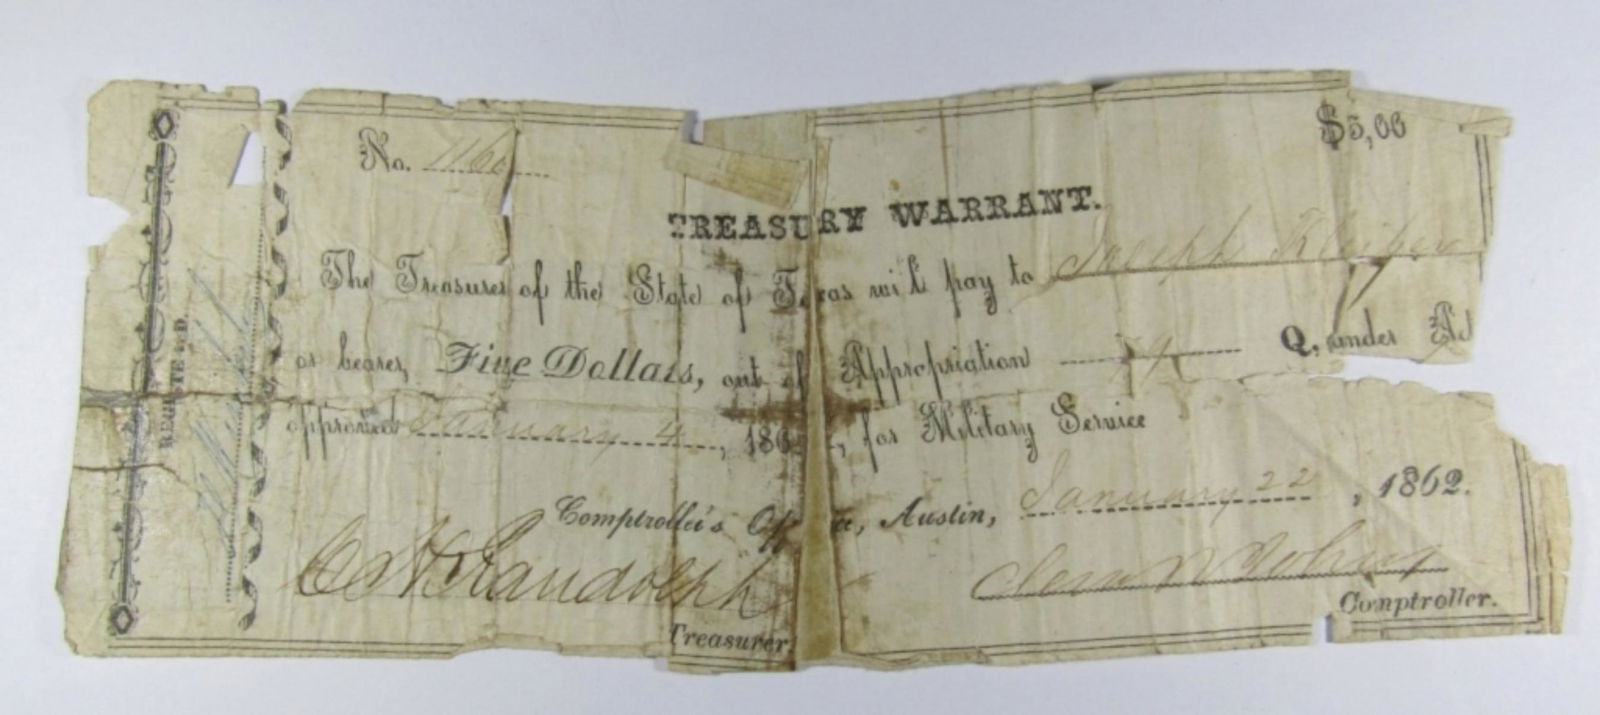 $5,00
No. 1160
TREASURY WARRANT.
The Treasurer of the State of Texas will pay to Joseph
or bearer, Five Dollars, out of Appropriation 79 Q, under Act
approved January 4, 186, for Military Service
Comptroller's Office, Austin, January 22, 1862.
C H Randolph
Clem R Johns
Treasurer
Comptroller.
REGISTERED.